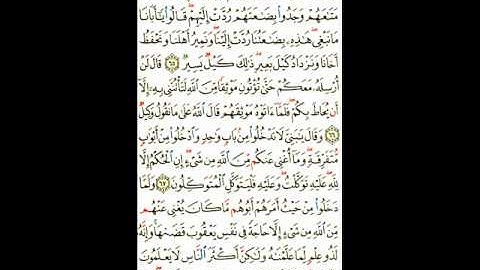 مَتَٰعَهُمْ وَجَدُوا۟ بِضَٰعَتَهُمْ رُدَّتْ إِلَيْهِمْ ۖ قَالُوا۟ يَٰٓأَبَانَا
مَا نَبْغِى ۖ هَٰذِهِۦ بِضَٰعَتُنَا رُدَّتْ إِلَيْنَا ۖ وَنَمِيرُ أَهْلَنَا وَنَحْفَظُ
أَخَانَا وَنَزْدَادُ كَيْلَ بَعِيرٍ ۖ ذَٰلِكَ كَيْلٌ يَسِيرٌ ٦٥ قَالَ لَنْ
أُرْسِلَهُۥ مَعَكُمْ حَتَّىٰ تُؤْتُونِ مَوْثِقًا مِّنَ ٱللَّهِ لَتَأْتُنَّنِى بِهِۦٓ إِلَّآ
أَن يُحَاطَ بِكُمْ ۖ فَلَمَّآ ءَاتَوْهُ مَوْثِقَهُمْ قَالَ ٱللَّهُ عَلَىٰ مَا نَقُولُ وَكِيلٌ
٦٦ وَقَالَ يَٰبَنِىَّ لَا تَدْخُلُوا۟ مِنۢ بَابٍ وَٰحِدٍ وَٱدْخُلُوا۟ مِنْ أَبْوَٰبٍ
مُّتَفَرِّقَةٍ ۖ وَمَآ أُغْنِى عَنكُم مِّنَ ٱللَّهِ مِن شَىْءٍ ۖ إِنِ ٱلْحُكْمُ إِلَّا
لِلَّهِ ۖ عَلَيْهِ تَوَكَّلْتُ ۖ وَعَلَيْهِ فَلْيَتَوَكَّلِ ٱلْمُتَوَكِّلُونَ ٦٧ وَلَمَّا
دَخَلُوا۟ مِنْ حَيْثُ أَمَرَهُمْ أَبُوهُم مَّا كَانَ يُغْنِى عَنْهُم
مِّنَ ٱللَّهِ مِن شَىْءٍ إِلَّا حَاجَةً فِى نَفْسِ يَعْقُوبَ قَضَىٰهَا ۚ وَإِنَّهُۥ
لَذُو عِلْمٍ لِّمَا عَلَّمْنَٰهُ وَلَٰكِنَّ أَكْثَرَ ٱلنَّاسِ لَا يَعْلَمُونَ